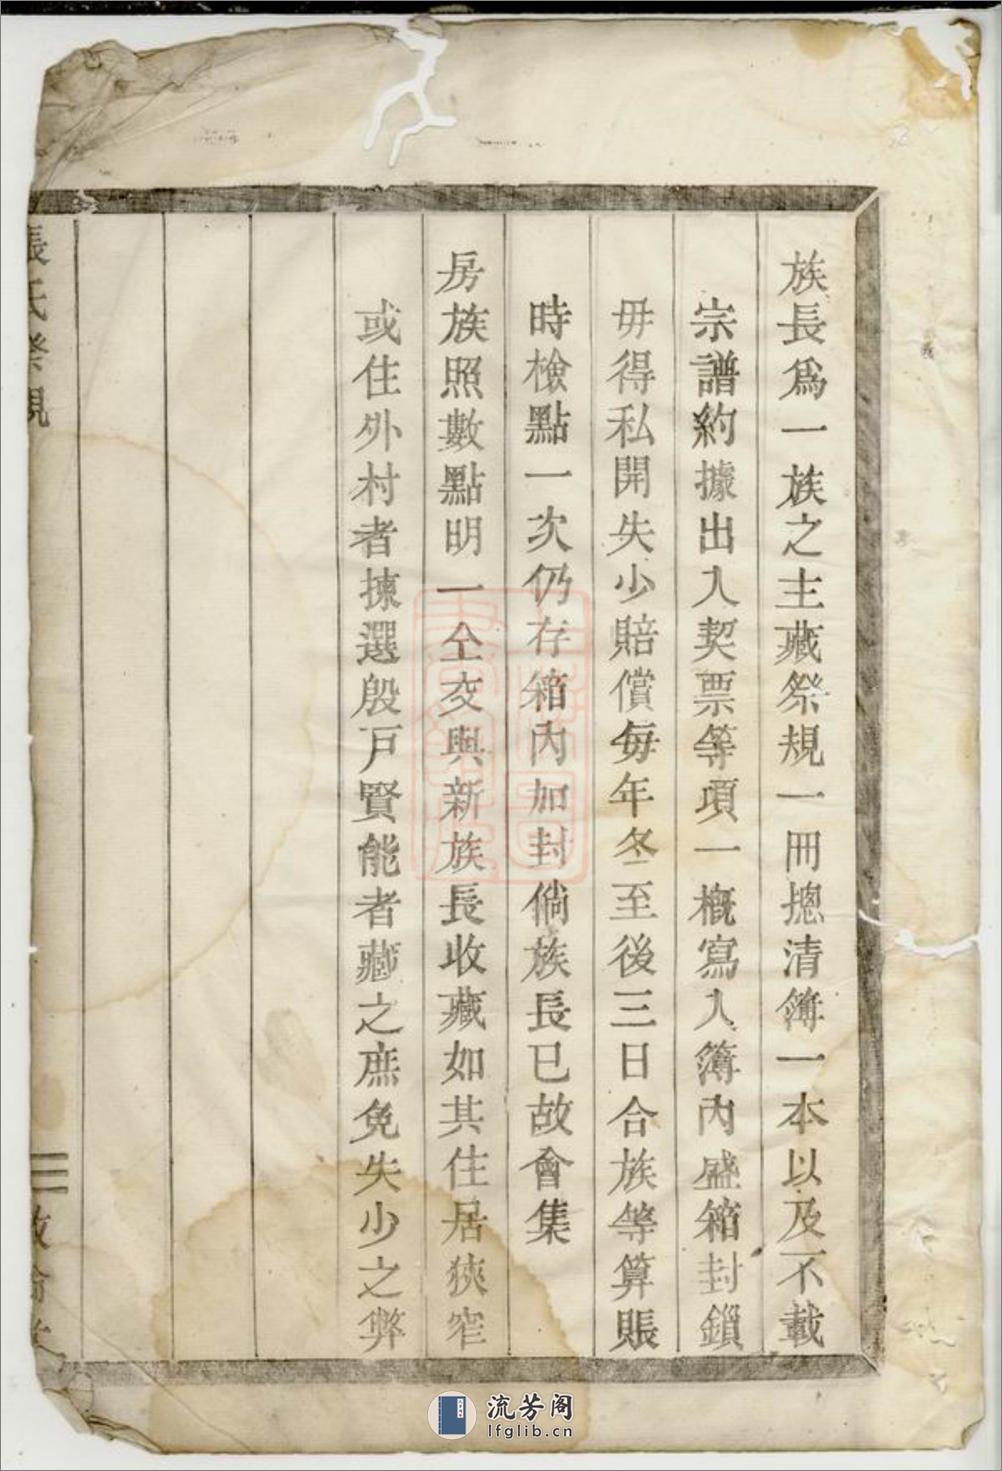 族長爲一族之主藏祭規一冊摠清簿一本以及不載
宗譜約據出入契票等項一概寫入簿內盛箱封鎖
毋得私開失少賠償每年冬至後三日合族等算賬
時檢點一次仍存箱內加封倘族長已故會集
房族照數點明一仝交與新族長收藏如其住居狹窄
或住外村者揀選殷戶賢能者藏之庶免失少之弊
張氏祭規
流芳阁
lfglib.cn